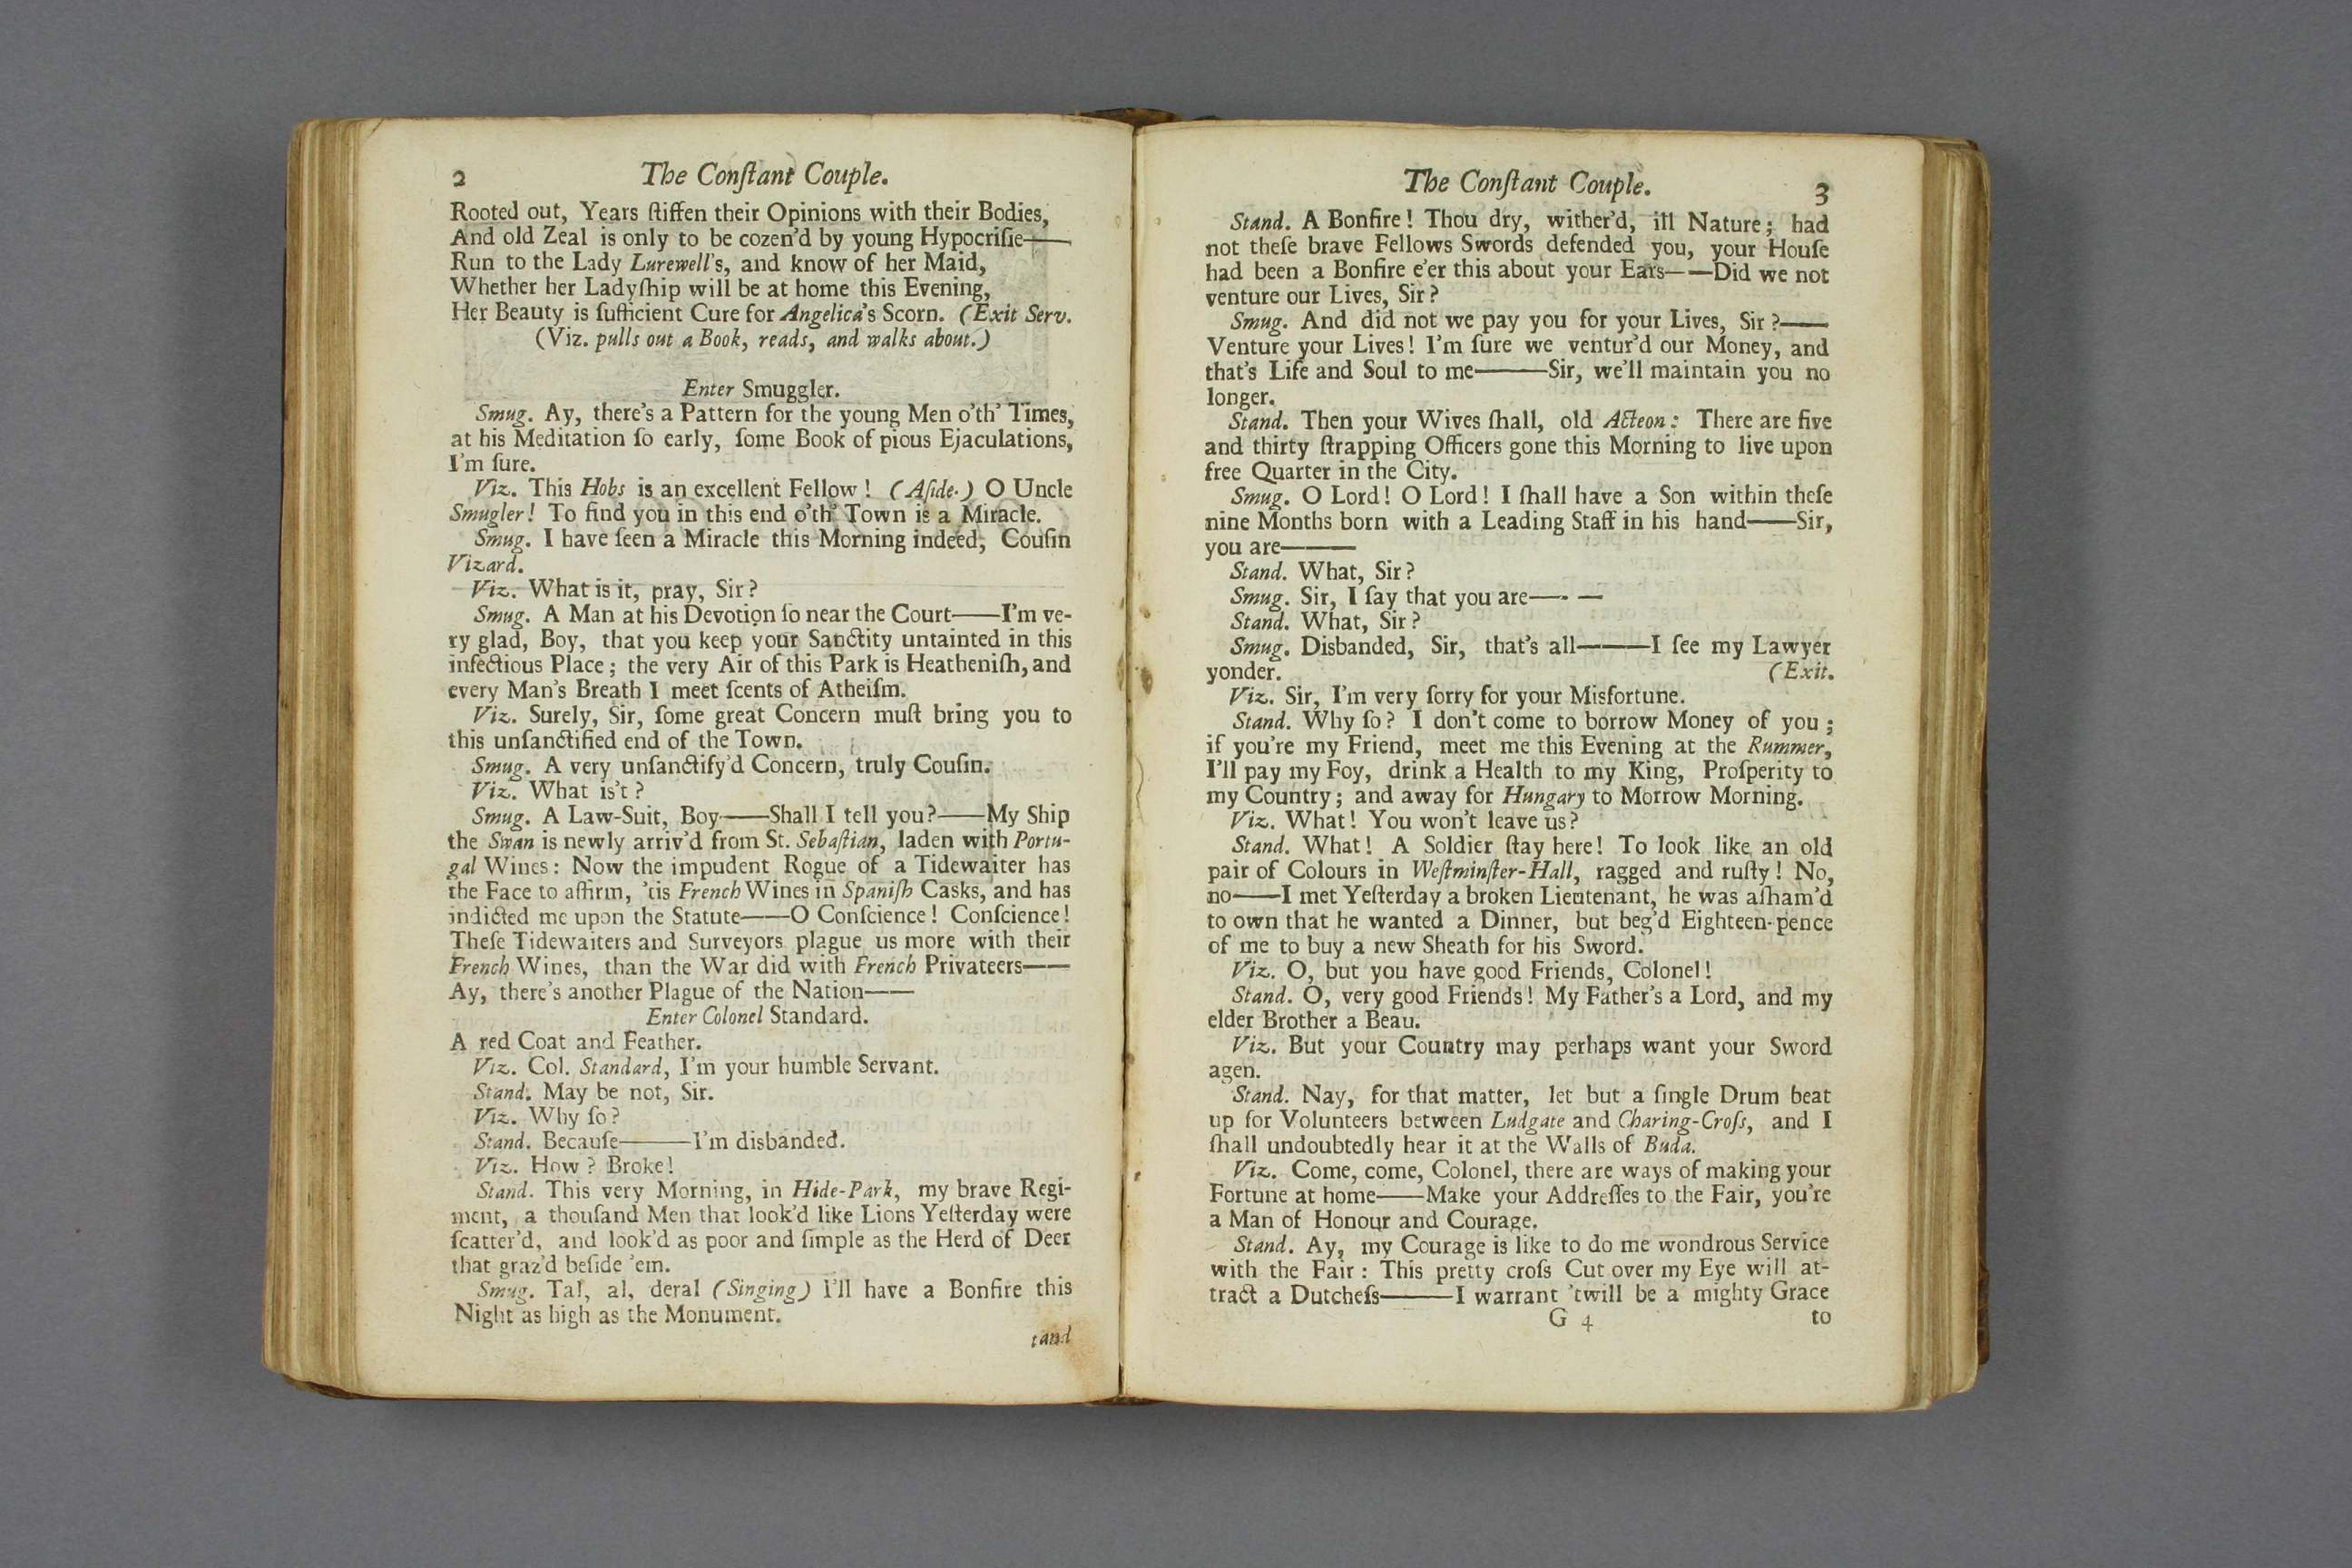 2 The Conſtant Couple.
Rooted out, Years ſtiffen their Opinions with their Bodies,
And old Zeal is only to be cozen'd by young Hypocriſie——
Run to the Lady Lurewell's, and know of her Maid,
Whether her Ladyſhip will be at home this Evening,
Her Beauty is ſufficient Cure for Angelica's Scorn. (Exit Serv.
(Viz. pulls out a Book, reads, and walks about.)
Enter Smuggler.
Smug. Ay, there's a Pattern for the young Men o'th' Times,
at his Meditation ſo early, ſome Book of pious Ejaculations,
I'm ſure.
Viz. This Hobs is an excellent Fellow! (Aſide.) O Uncle
Smugler! To find you in this end o'th' Town is a Miracle.
Smug. I have ſeen a Miracle this Morning indeed, Couſin
Vizard.
Viz. What is it, pray, Sir?
Smug. A Man at his Devotion ſo near the Court——I'm ve-
ry glad, Boy, that you keep your Sanctity untainted in this
infectious Place; the very Air of this Park is Heatheniſh, and
every Man's Breath I meet ſcents of Atheiſm.
Viz. Surely, Sir, ſome great Concern muſt bring you to
this unſanctified end of the Town.
Smug. A very unſanctify'd Concern, truly Couſin.
Viz. What is't?
Smug. A Law-Suit, Boy——Shall I tell you?——My Ship
the Swan is newly arriv'd from St. Sebaſtian, laden with Portu-
gal Wines: Now the impudent Rogue of a Tidewaiter has
the Face to affirm, 'tis French Wines in Spaniſh Casks, and has
indicted me upon the Statute——O Conſcience! Conſcience!
Theſe Tidewaiters and Surveyors plague us more with their
French Wines, than the War did with French Privateers——
Ay, there's another Plague of the Nation——
Enter Colonel Standard.
A red Coat and Feather.
Viz. Col. Standard, I'm your humble Servant.
Stand. May be not, Sir.
Viz. Why ſo?
Stand. Becauſe———I'm disbanded.
Viz. How? Broke!
Stand. This very Morning, in Hide-Park, my brave Regi-
ment, a thouſand Men that look'd like Lions Yeſterday were
ſcatter'd, and look'd as poor and ſimple as the Herd of Deer
that graz'd beſide 'em.
Smug. Tal, al, deral (Singing) I'll have a Bonfire this
Night as high as the Monument.
tand
The Conſtant Couple. 3
Stand. A Bonfire! Thou dry, wither'd, ill Nature; had
not theſe brave Fellows Swords defended you, your Houſe
had been a Bonfire e'er this about your Ears——Did we not
venture our Lives, Sir?
Smug. And did not we pay you for your Lives, Sir?——
Venture your Lives! I'm ſure we ventur'd our Money, and
that's Life and Soul to me———Sir, we'll maintain you no
longer.
Stand. Then your Wives ſhall, old Acteon: There are five
and thirty ſtrapping Officers gone this Morning to live upon
free Quarter in the City.
Smug. O Lord! O Lord! I ſhall have a Son within theſe
nine Months born with a Leading Staff in his hand——Sir,
you are———
Stand. What, Sir?
Smug. Sir, I ſay that you are—- —
Stand. What, Sir?
Smug. Disbanded, Sir, that's all———I ſee my Lawyer
yonder. (Exit.
Viz. Sir, I'm very ſorry for your Misfortune.
Stand. Why ſo? I don't come to borrow Money of you;
if you're my Friend, meet me this Evening at the Rummer,
I'll pay my Foy, drink a Health to my King, Proſperity to
my Country; and away for Hungary to Morrow Morning.
Viz. What! You won't leave us?
Stand. What! A Soldier ſtay here! To look like an old
pair of Colours in Weſtminſter-Hall, ragged and ruſty! No,
no——I met Yeſterday a broken Lieutenant, he was aſham'd
to own that he wanted a Dinner, but beg'd Eighteen-pence
of me to buy a new Sheath for his Sword.
Viz. O, but you have good Friends, Colonel!
Stand. O, very good Friends! My Father's a Lord, and my
elder Brother a Beau.
Viz. But your Country may perhaps want your Sword
agen.
Stand. Nay, for that matter, let but a ſingle Drum beat
up for Volunteers between Ludgate and Charing-Croſs, and I
ſhall undoubtedly hear it at the Walls of Buda.
Viz. Come, come, Colonel, there are ways of making your
Fortune at home——Make your Addreſſes to the Fair, you're
a Man of Honour and Courage.
Stand. Ay, my Courage is like to do me wondrous Service
with the Fair: This pretty croſs Cut over my Eye will at-
tract a Dutcheſs———I warrant 'twill be a mighty Grace
G 4 to